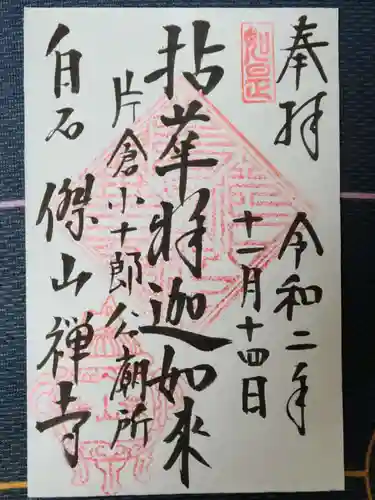 奉拝
令和二年
十一月十四日
如是
拈華釈迦如来
片倉小十郎公廟所
白石
傑山禅寺